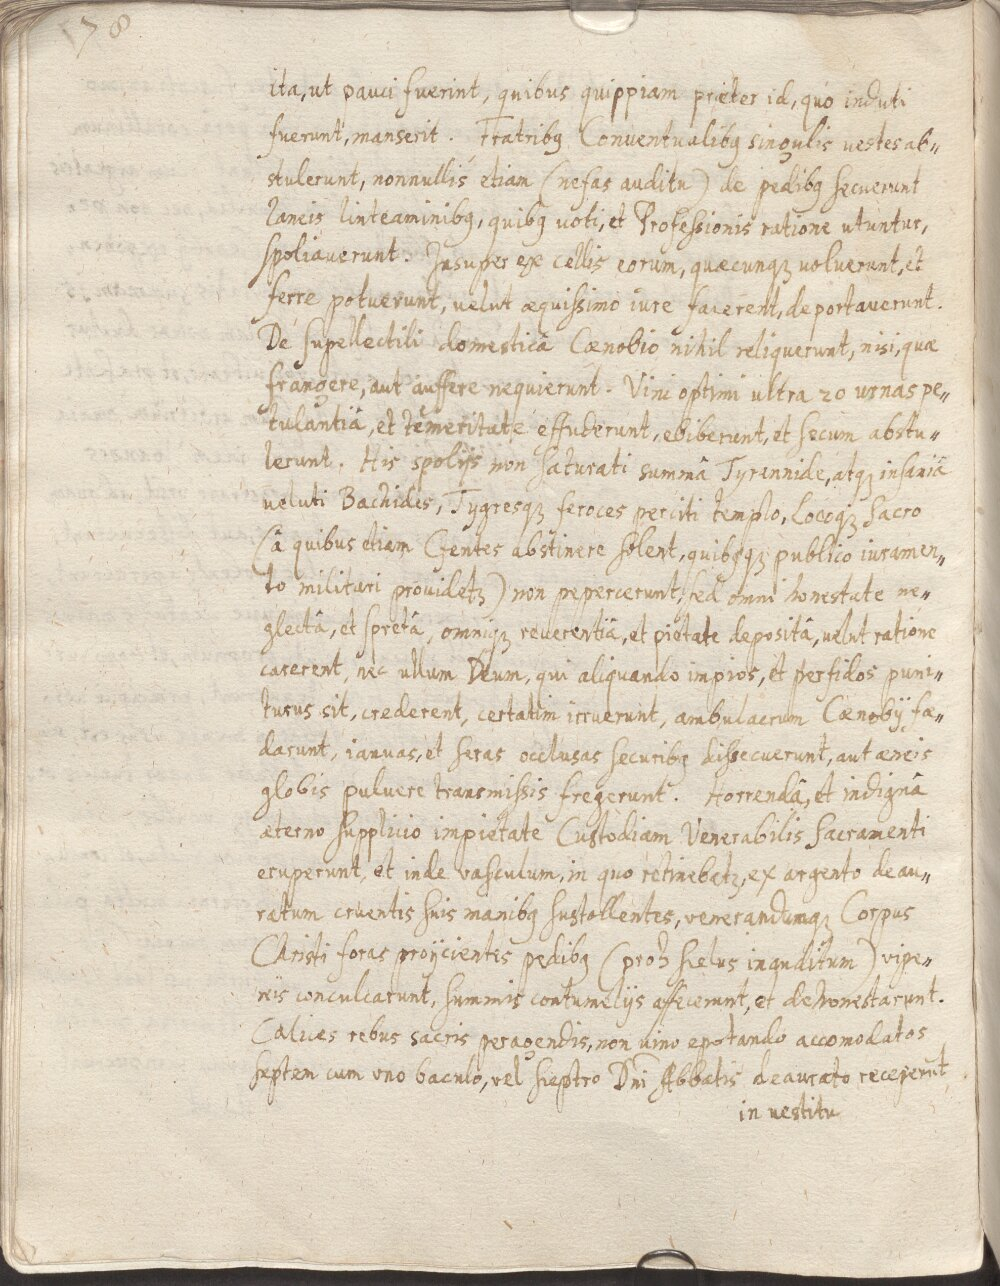 178
ita, ut pauci fuerint, quibus quippiam præter id, quo induti
fuerunt, manserit. Fratribq Conventualibq singulis vestes ab„
stulerunt, nonnullis etiam (nefas auditu) de pedibq secuerunt
laneis linteaminibq, quibq voti, et Professionis ratione utuntur,
spoliaverunt. Insuper ex cellis eorum, quæcunqz voluerunt, et
ferre potuerunt, velut æquissimo iure facerent, deportaverunt.
De supellectili domesticâ Cœnobio nihil reliquerunt, nisi, quæ
frangere, aut auffere nequierunt. Vini optimi ultra 20 urnas pe„
tulantiâ, et temeritate effuderunt, ebiberunt, et secum abstu„
lerunt. His spolijs non saturati summâ Tyrannide, atqz insaniâ
veluti Bachides, Tygresqz feroces perciti templo, Locoqz Sacro
(â quibus etiam Gentes abstinere solent, quibqqz publico iuramen„
to militari providetz) non pepercerunt, sed omni honestate ne„
glectâ, et spretâ, omniqz reverentiâ, et pietate depositâ, velut ratione
carerent, nec ullum Deum, qui aliquando impios, et perfidos puni„
turus sit, crederent, certatim irruerunt, ambulacrum Cœnobij fæ„
darunt, ianuas, et seras occlusas securibq dissecuerunt, aut æneis
globis pulvere transmissis fregerunt. Horrendâ, et indignâ
æterno supplicio impietate Custodiam Venerabilis Sacramenti
eruperunt, et inde vasculum, in quo retinebatz, ex argento deau„
ratum cruentis suis manibq sustollentes, venerandumqz Corpus
Christi foras proijcientes pedibq (proh scelus inauditum) vipe„
reis conculcarunt, summis contumelijs affecerunt, et dehonestarunt.
Calices rebus sacris peragendis, non vino epotando accomodatos
septem cum uno baculo, vel sceptro Dni Abbatis deaurato receperūt
in vestitu